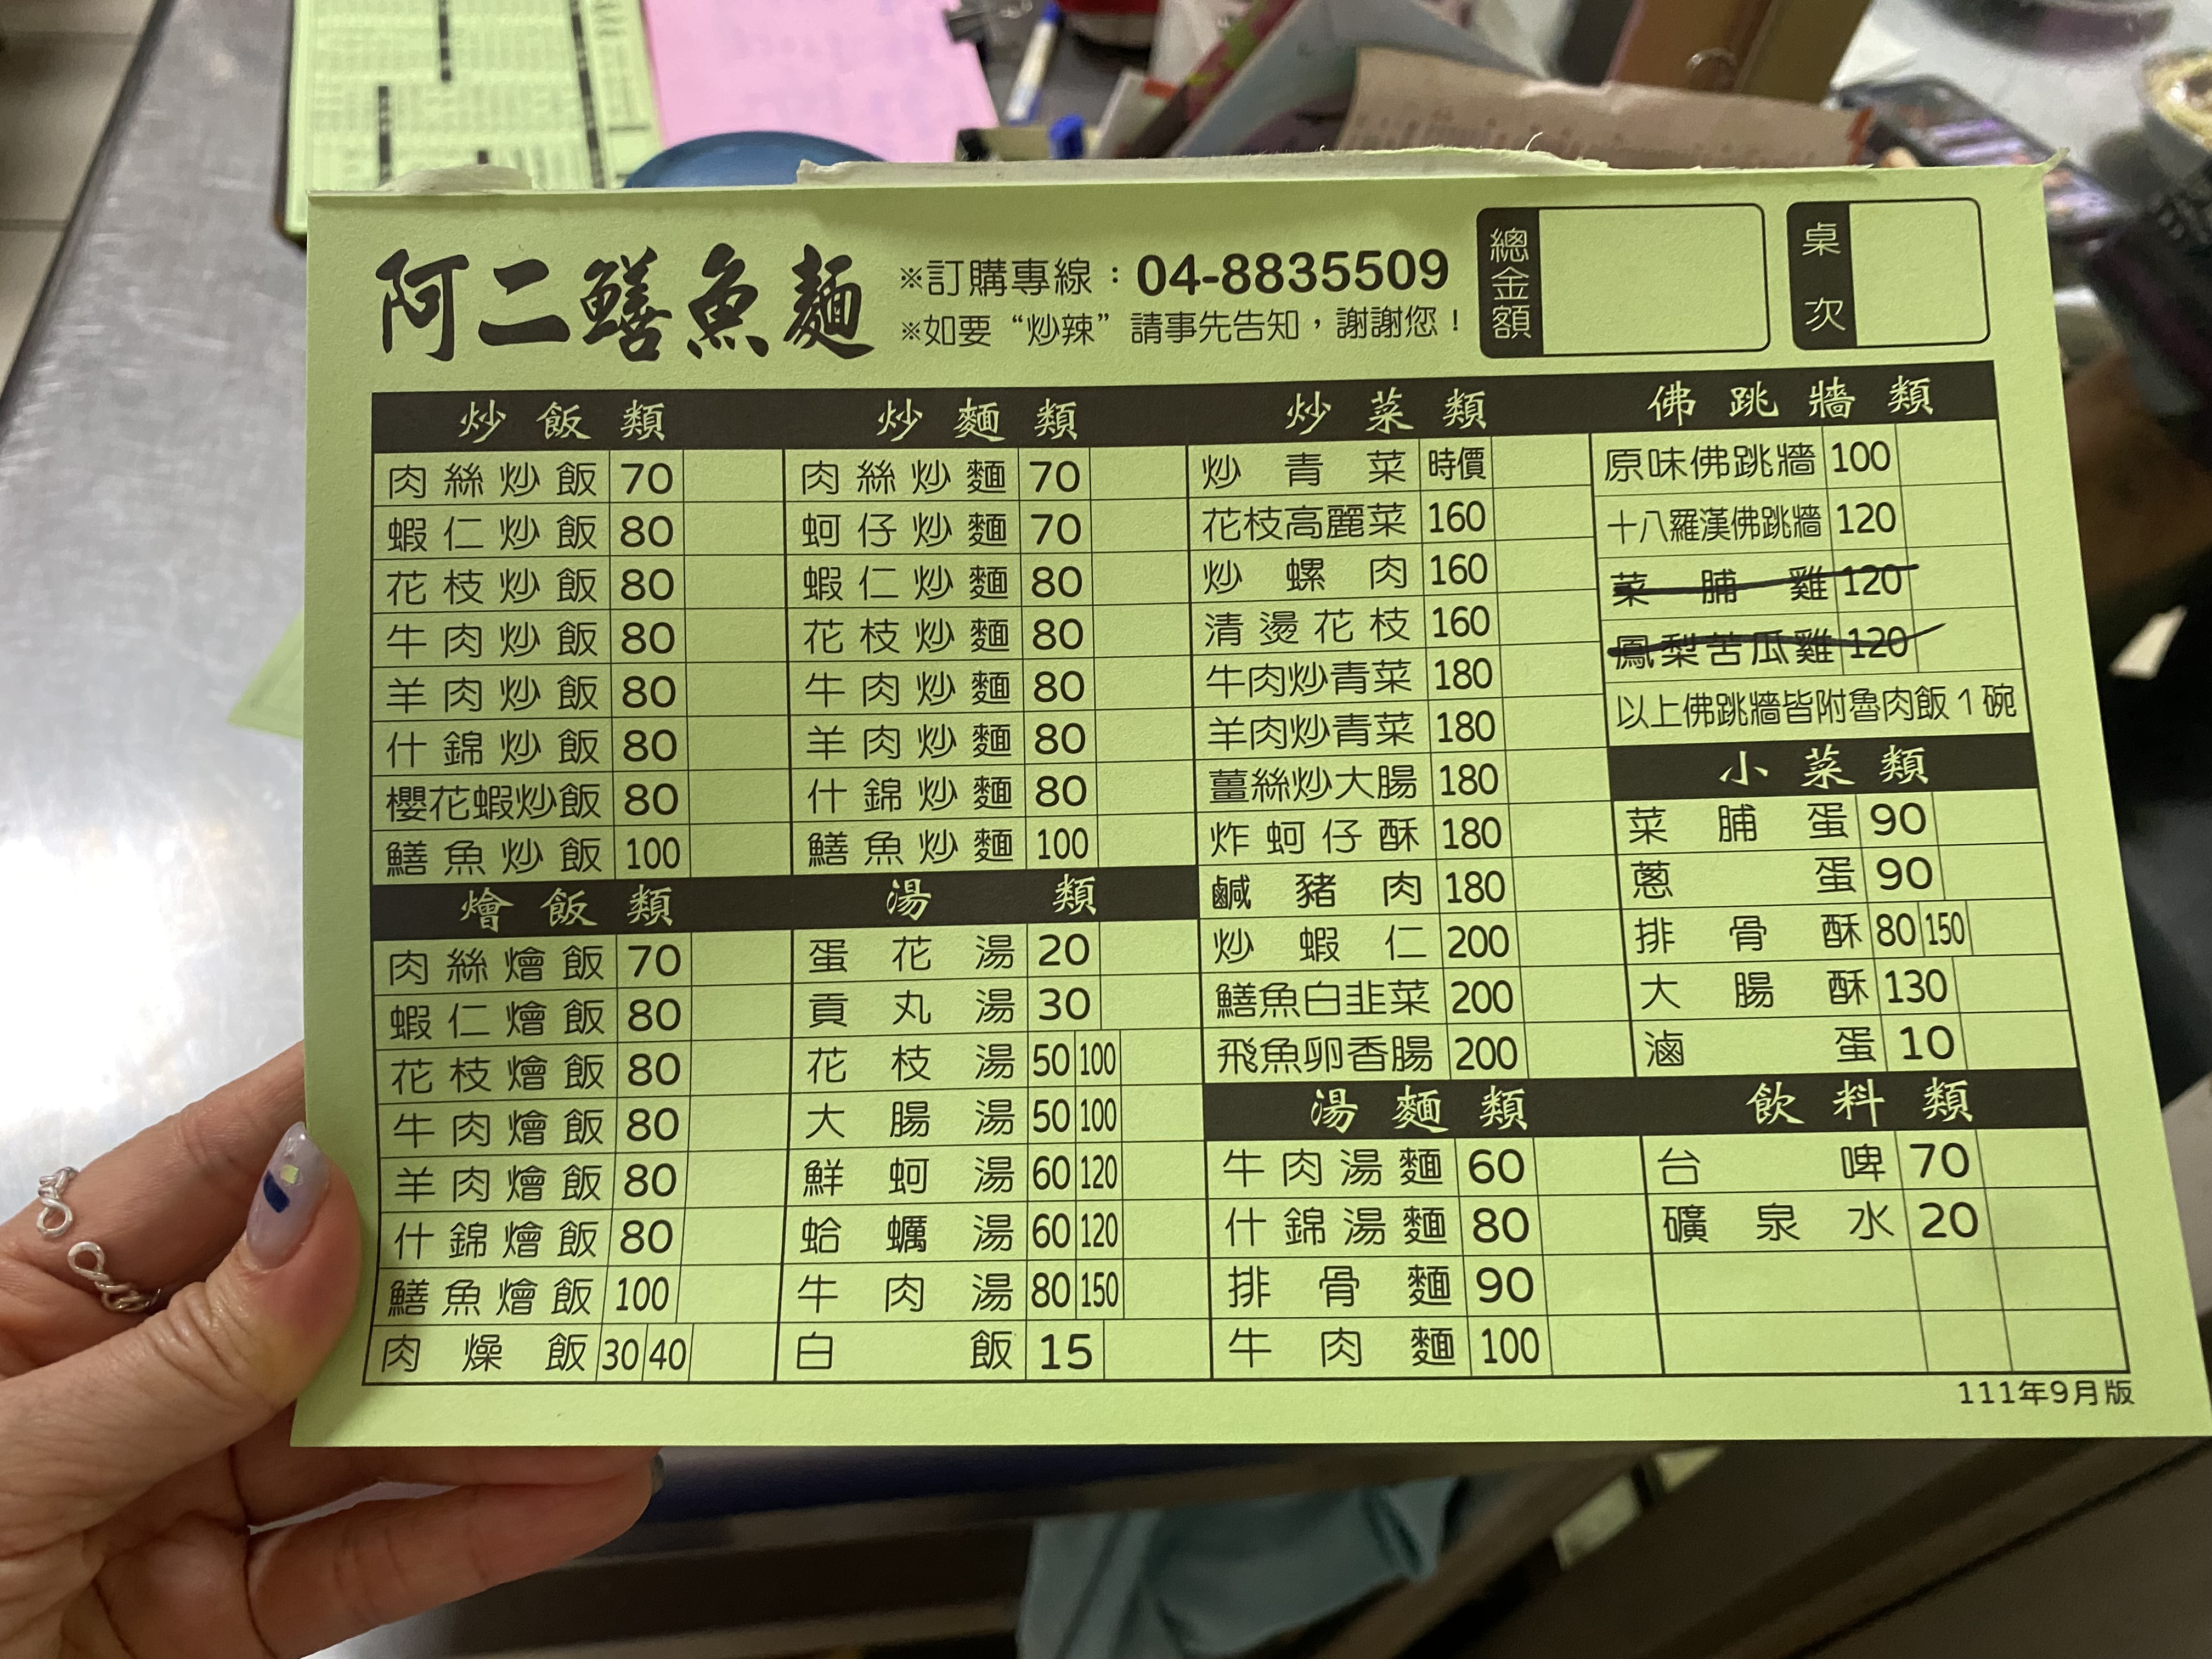 阿二鱔魚麵
※訂購專線：04-8835509
※如要“炒辣”請事先告知，謝謝您！
總金額
桌次
炒飯類
肉絲炒飯 70
蝦仁炒飯 80
花枝炒飯 80
牛肉炒飯 80
羊肉炒飯 80
什錦炒飯 80
櫻花蝦炒飯 80
鱔魚炒飯 100
燴飯類
肉絲燴飯 70
蝦仁燴飯 80
花枝燴飯 80
牛肉燴飯 80
羊肉燴飯 80
什錦燴飯 80
鱔魚燴飯 100
肉燥飯 30 40
炒麵類
肉絲炒麵 70
蚵仔炒麵 70
蝦仁炒麵 80
花枝炒麵 80
牛肉炒麵 80
羊肉炒麵 80
什錦炒麵 80
鱔魚炒麵 100
湯類
蛋花湯 20
貢丸湯 30
花枝湯 50 100
大腸湯 50 100
鮮蚵湯 60 120
蛤蠣湯 60 120
牛肉湯 80 150
白飯 15
炒菜類
炒青菜 時價
花枝高麗菜 160
炒螺肉 160
清燙花枝 160
牛肉炒青菜 180
羊肉炒青菜 180
薑絲炒大腸 180
炸蚵仔酥 180
鹹豬肉 180
炒蝦仁 200
鱔魚白韭菜 200
飛魚卵香腸 200
湯麵類
牛肉湯麵 60
什錦湯麵 80
排骨麵 90
牛肉麵 100
佛跳牆類
原味佛跳牆 100
十八羅漢佛跳牆 120
菜脯雞 120
鳳梨苦瓜雞 120
以上佛跳牆皆附魯肉飯1碗
小菜類
菜脯蛋 90
蔥蛋 90
排骨酥 80 150
大腸酥 130
滷蛋 10
飲料類
台啤 70
礦泉水 20
111年9月版